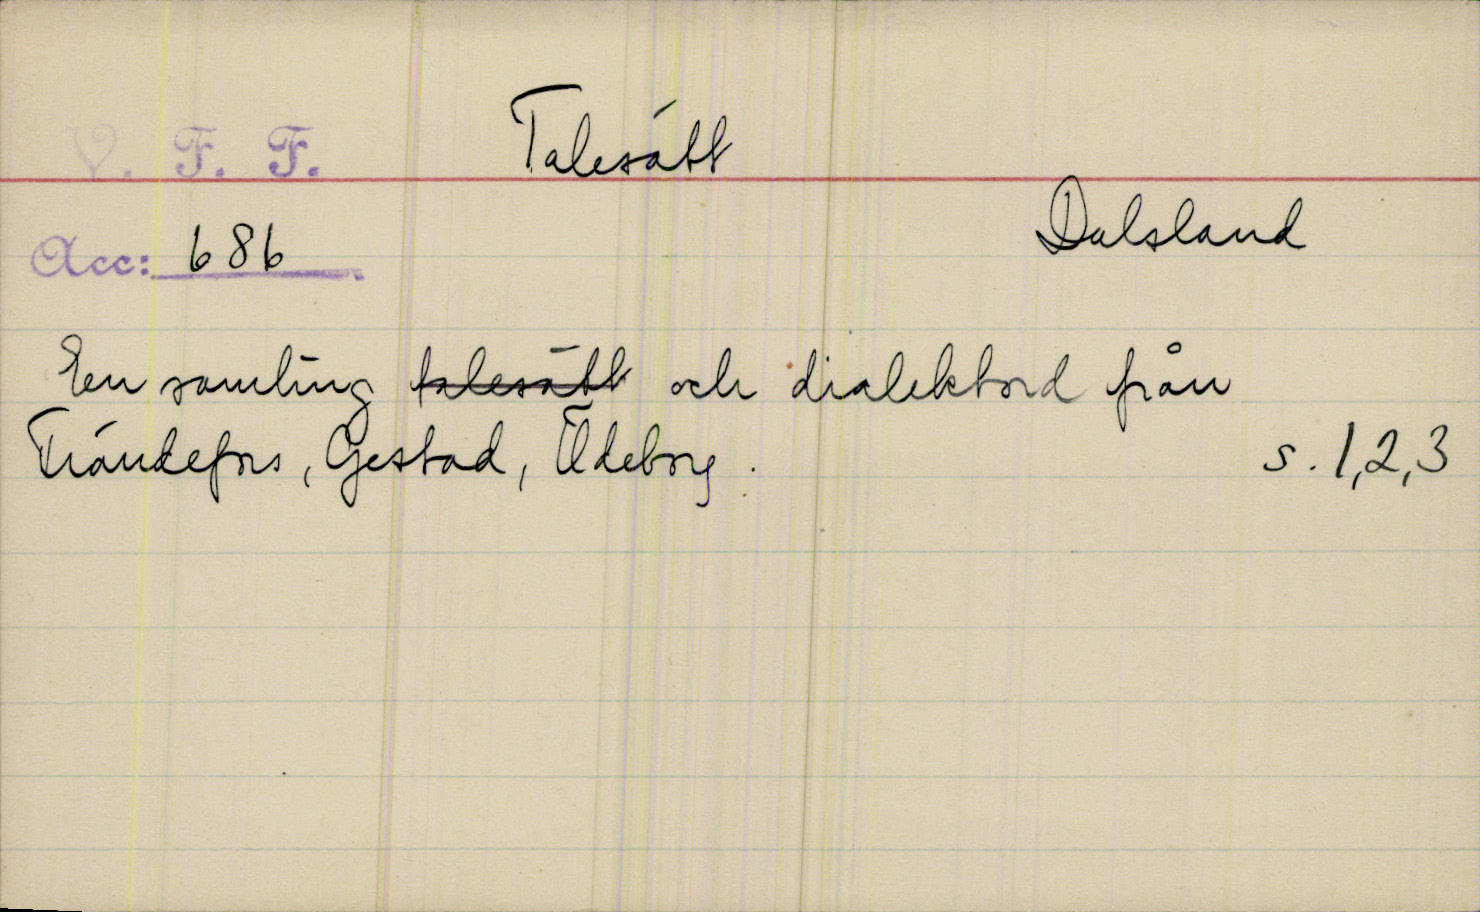 V. F. F. Talesätt
Dalsland
Acc: 686
En samling talesätt och dialektord från
Tråndefors, Gestad, Ödeborg.
s. 1,2,3